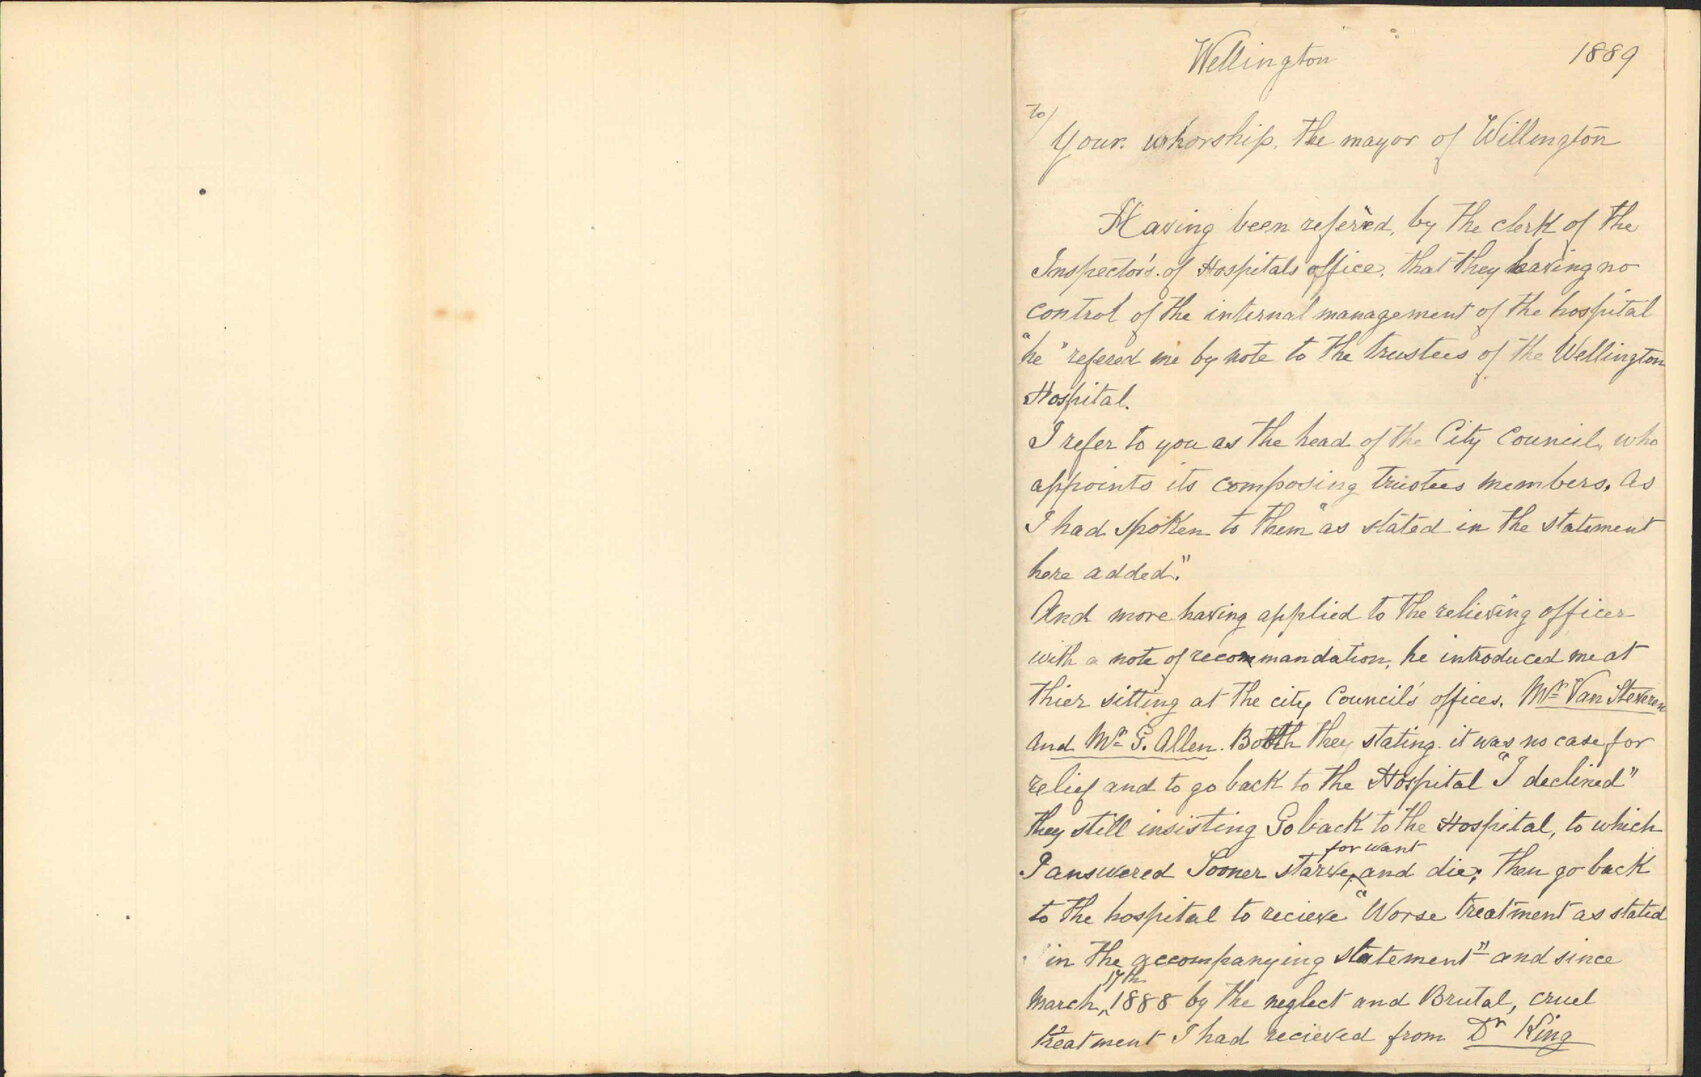 Wellington 1889
to/
Your. whorship. The mayor of Willington
Having been referred, by the clerk of the
Inspector's. of Hospitals office. that they having no
control of the internal management of the hospital
"he" refered me by note to the trustees of the Wellington
Hospital.
I refer to you as the head of the City Council, who
appoints its composing trustees members. As
I had spoken to them "as stated in the statement
here added."
And more having applied to the relieving officer
with a note of recommandation, he introduced me at
thier sitting at the city Council's offices. Mr Van Staveren
and Mr G. Allen. Both they stating. it was no case for
relief and to go back to the Hospital "I declined"
they still insisting Go back to the Hospital, to which
for want
I answered Sooner starve, and die; then go back
to the hospital to recieve "Worse treatment as stated
"in the accompanying statement" and since
17th
March, 1888 by the neglect and Brutal, cruel
treatment I had recieved from Dr King